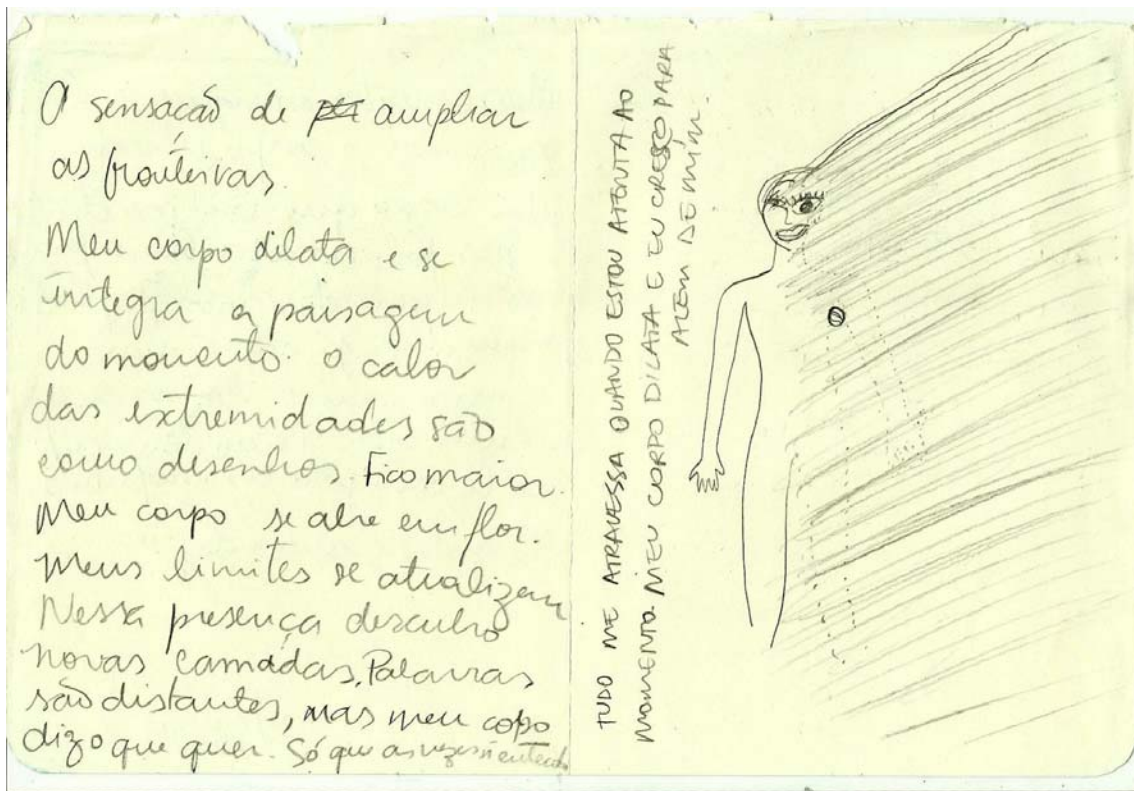 A sensação de ampliar
as fronteiras.
Meu corpo dilata e se
integra a paisagem
do momento. o calor
das extremidades são
como desenhos. Fico maior.
Meu corpo se abre em flor.
Meus limites se atualizam
Nessa presença descubro
novas camadas. Palavras
são distantes, mas meu corpo
diz o que quer. Só que as vezes ñ entendo
TUDO ME ATRAVESSA QUANDO ESTOU ATENTA AO
MOMENTO. MEU CORPO DILATA E EU CRESÇO PARA
ALÉM DE MIM.